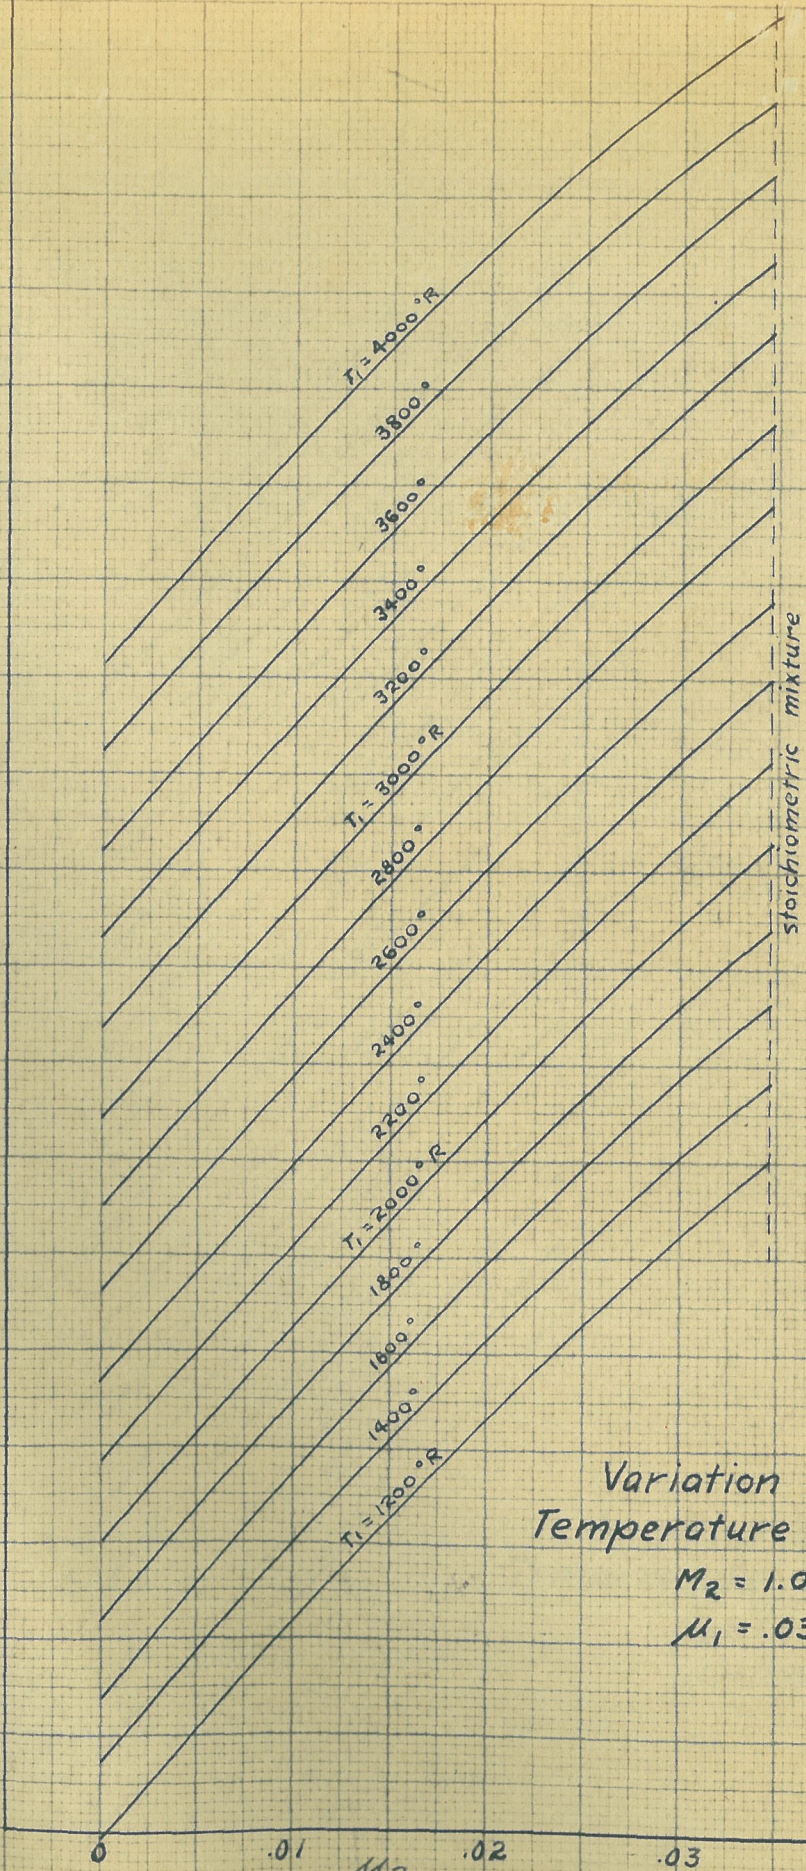 T₁ = 4000 °R
3800°
3600°
3400°
3200°
T₁ = 3000 °R
2800°
2600°
2400°
2200°
T₁ = 2000 °R
1800°
1600°
1400°
T₁ = 1200 °R
stoichiometric mixture
Variation
Temperature
M₂ = 1.0
μ₁ = .03
0 .01 .02 .03